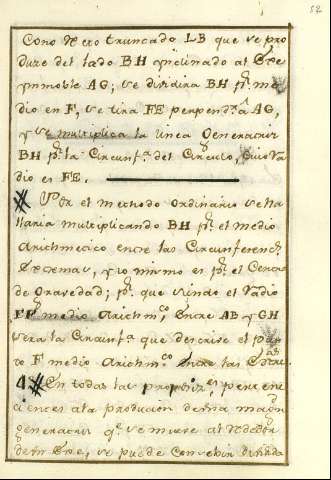 52
Cono Recto truncado LB que se pro
duxe del lado BH ynclinado al Exe
ynmoble AG; se dividira BH pr. me
dio en F, se tira FE perpendr. â AG,
y se multiplica la linea Generatris
BH pr. la Circunfa. del Circulo, cuio Ra
dio es FE.
Por el methodo Ordinario se ha
llaria multiplicando BH pr. el medio
Arithmetico entre las Circunferencs.
Extremas, y lo mismo es pr. el Centro
de Gravedad; pr. que siendo el Radio
FE medio Arithmco. Entre AB y GH
sera la Circunfa. que descrive el pun
to F medio Arithmco. Entre las Extrs.
4 En todas las proposizes. pertene
cientes ala producion desta magn
generatris qe. se mueve al rededor
de un Exe, se puede Concebir dividida